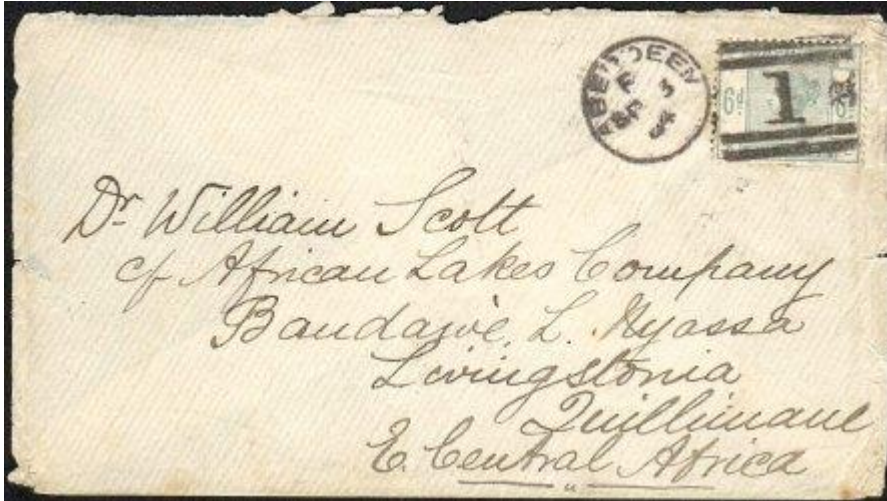 ABERDEEN
F 3
SP
84
6d
1
Dr. William Scott
c/ African Lakes Company
Bandawè, L. Nyassa
Livingstonia
Quillimane
E. Central Africa